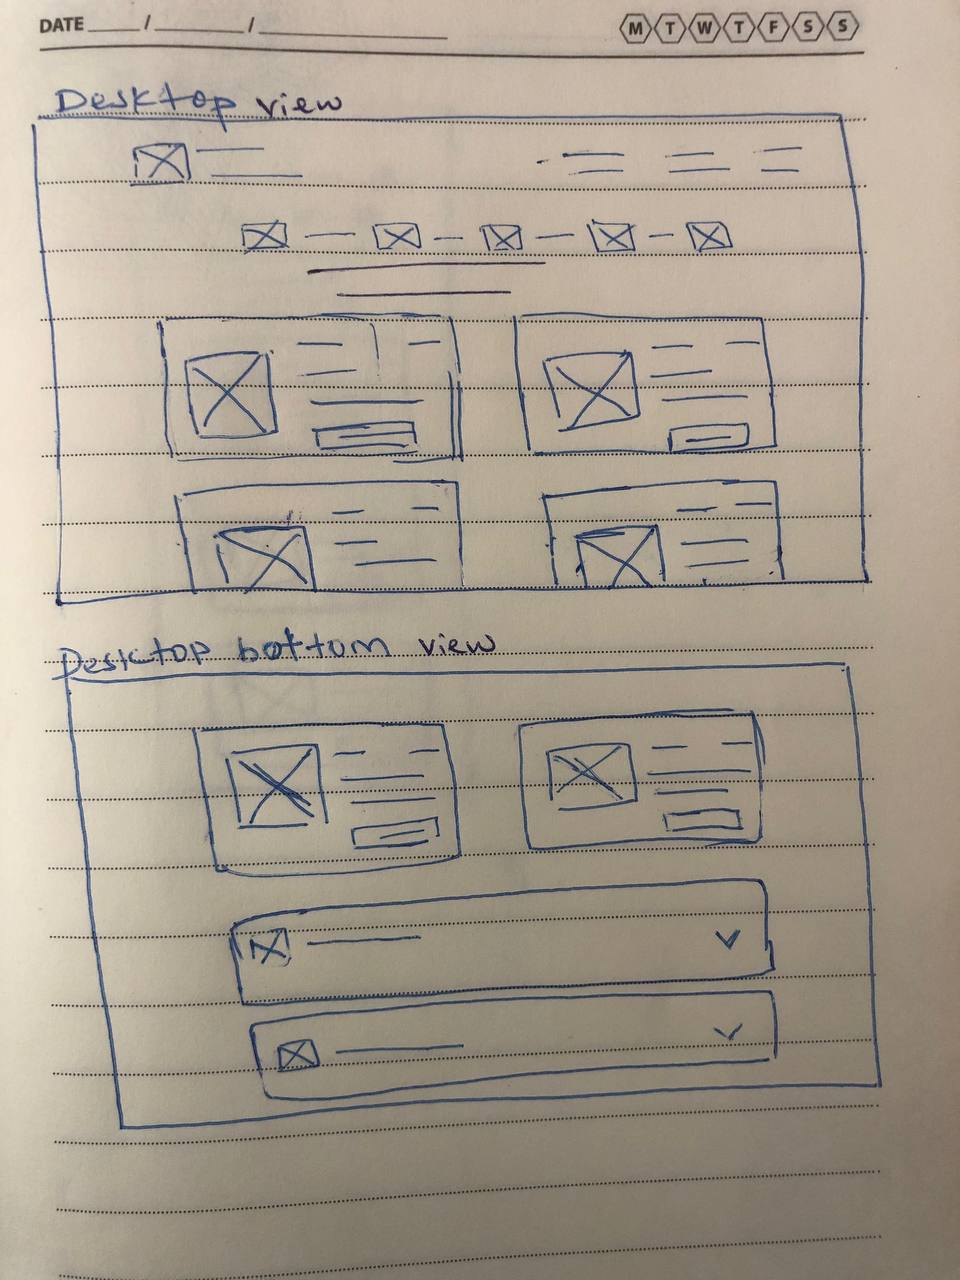 DATE ____/______/____________ M T W T F S S
Desktop view
Desktop bottom view